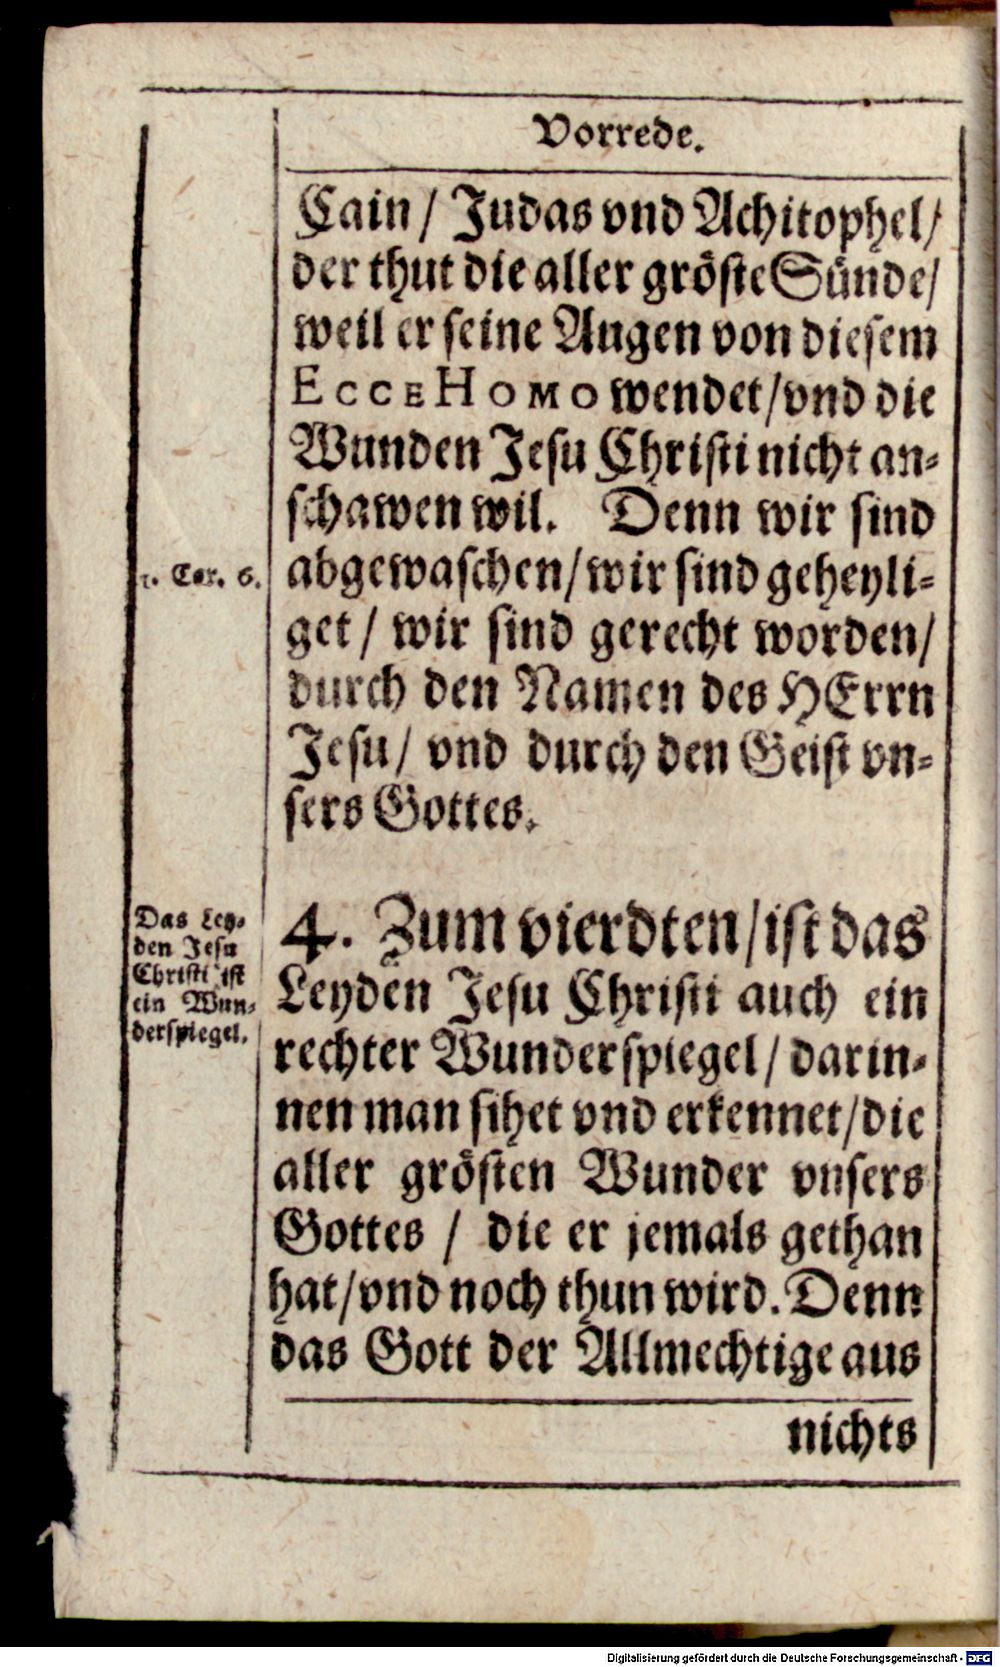 Vorrede.
Cain / Judas vnd Achitophel/
der thut die aller gröste Sünde/
weil er seine Augen von diesem
ECCE HOMO wendet/vnd die
Wunden Jesu Christi nicht an-
schawen wil. Denn wir sind
1. Cor. 6.
abgewaschen/wir sind geheyli-
get / wir sind gerecht worden/
durch den Namen des HErrn
Jesu/ vnd durch den Geist vn-
sers Gottes.
Das Ley-
den Jesu
Christi ist
ein Wun-
derspiegel.
4. Zum vierdten/ist das
Leyden Jesu Christi auch ein
rechter Wunderspiegel/ darin-
nen man sihet vnd erkennet/die
aller grösten Wunder vnsers
Gottes / die er jemals gethan
hat/vnd noch thun wird. Denn
das Gott der Allmechtige aus
nichts
Digitalisierung gefördert durch die Deutsche Forschungsgemeinschaft - DFG